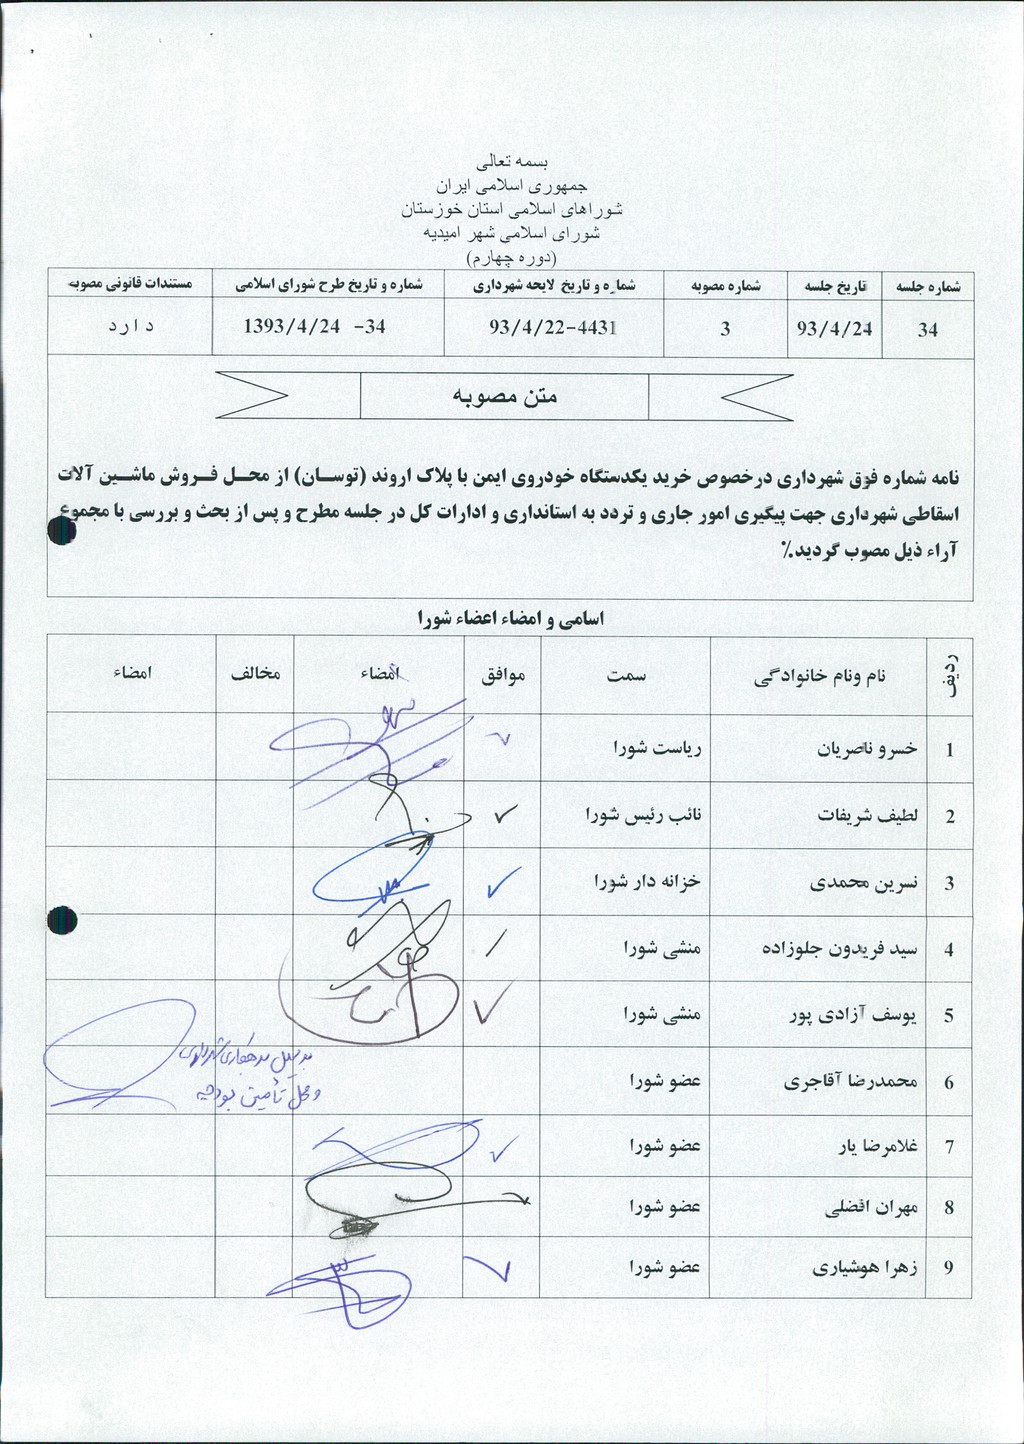 بسمه تعالی
جمهوری اسلامی ایران
شوراهای اسلامی استان خوزستان
شورای اسلامی شهر امیدیه
(دوره چهارم)
شماره جلسه تاریخ جلسه شماره مصوبه شماره و تاریخ لایحه شهرداری شماره و تاریخ طرح شورای اسلامی مستندات قانونی مصوبه
34 93/4/24 3 93/4/22-4431 1393/4/24 -34 دارد
متن مصوبه
نامه شماره فوق شهرداری درخصوص خرید یکدستگاه خودروی ایمن با پلاک اروند (توسان) از محل فروش ماشین آلات
اسقاطی شهرداری جهت پیگیری امور جاری و تردد به استانداری و ادارات کل در جلسه مطرح و پس از بحث و بررسی با مجموع
آراء ذیل مصوب گردید.٪
اسامی و امضاء اعضاء شورا
ردیف نام ونام خانوادگی سمت موافق امضاء مخالف امضاء
1 خسرو ناصریان ریاست شورا
2 لطیف شریفات نائب رئیس شورا
3 نسرین محمدی خزانه دار شورا
4 سید فریدون جلوزاده منشی شورا
5 یوسف آزادی پور منشی شورا
6 محمدرضا آقاجری عضو شورا
بدلیل بدهکاری شهرداری
و محل تأمین بودجه
7 غلامرضا یار عضو شورا
8 مهران افضلی عضو شورا
9 زهرا هوشیاری عضو شورا